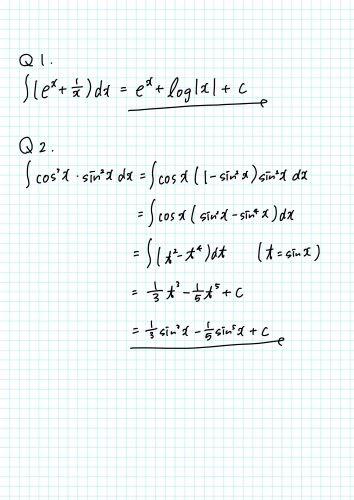 Q1.
∫(eˣ + 1/x)dx = eˣ + log|x| + c
Q2.
∫cos³x · sin²x dx = ∫cos x (1 - sin²x) sin²x dx
= ∫cos x (sin²x - sin⁴x) dx
= ∫(t² - t⁴)dt (t = sin x)
= 1/3 t³ - 1/5 t⁵ + c
= 1/3 sin³x - 1/5 sin⁵x + c